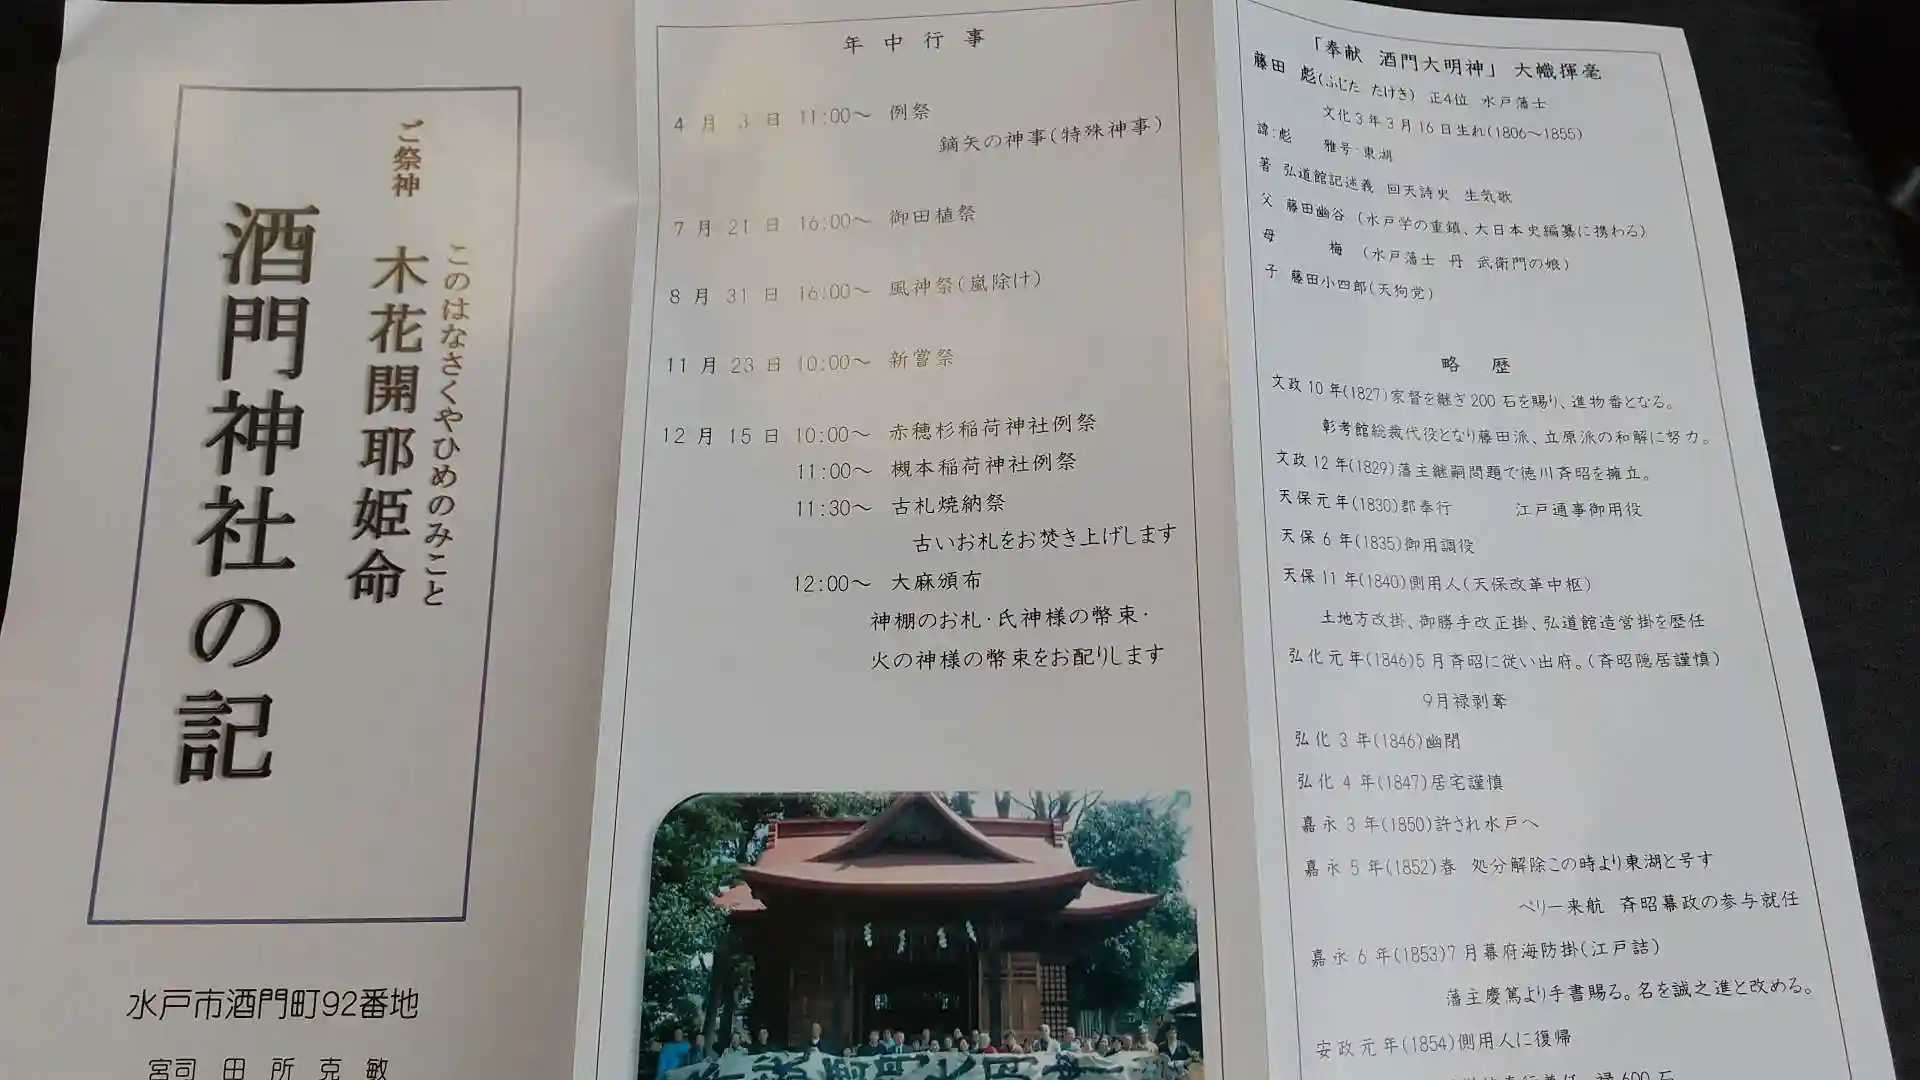 ご祭神
このはなさくやひめのみこと
木花開耶姫命
酒門神社の記
水戸市酒門町92番地
宮司 田所克敏
年中行事
4月 3日 11:00~ 例祭
鏑矢の神事(特殊神事)
7月 21日 16:00~ 御田植祭
8月 31日 16:00~ 風神祭(嵐除け)
11月 23日 10:00~ 新嘗祭
12月 15日 10:00~ 赤穂杉稲荷神社例祭
11:00~ 槻本稲荷神社例祭
11:30~ 古札焼納祭
古いお札をお焚き上げします
12:00~ 大麻頒布
神棚のお札・氏神様の幣束・
火の神様の幣束をお配りします
「奉献 酒門大明神」大幟揮毫
藤田 彪(ふじた たけき) 正4位 水戸藩士
文化3年3月16日生れ(1806~1855)
諱:彪 雅号:東湖
著 弘道館記述義 回天詩史 生気歌
父 藤田幽谷 (水戸学の重鎮、大日本史編纂に携わる)
母 梅 (水戸藩士 丹 武衛門の娘)
子 藤田小四郎(天狗党)
略歴
文政10年(1827)家督を継ぎ200石を賜り、進物番となる。
彰考館総裁代役となり藤田派、立原派の和解に努力。
文政12年(1829)藩主継嗣問題で徳川斉昭を擁立。
天保元年(1830)郡奉行 江戸通事御用役
天保6年(1835)御用調役
天保11年(1840)側用人(天保改革中枢)
土地方改掛、御勝手改正掛、弘道館造営掛を歴任
弘化元年(1846)5月斉昭に従い出府。(斉昭隠居謹慎)
9月禄剥奪
弘化3年(1846)幽閉
弘化4年(1847)居宅謹慎
嘉永3年(1850)許され水戸へ
嘉永5年(1852)春 処分解除この時より東湖と号す
ペリー来航 斉昭幕政の参与就任
嘉永6年(1853)7月幕府海防掛(江戸詰)
藩主慶篤より手書賜る。名を誠之進と改める。
安政元年(1854)側用人に復帰
禄600石